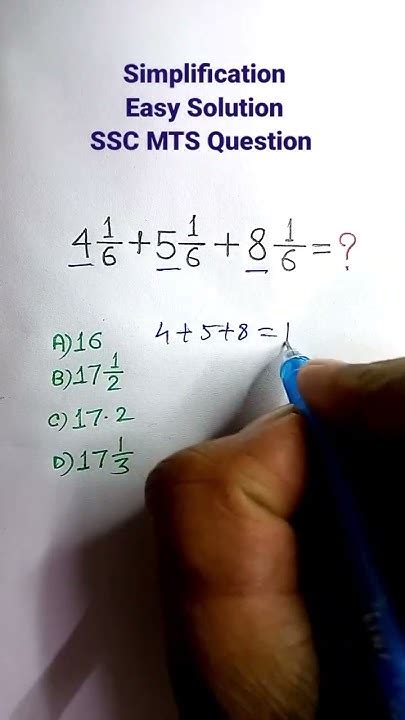 Simplification
Easy Solution
SSC MTS Question
4 1/6 + 5 1/6 + 8 1/6 = ?
A) 16
4 + 5 + 8 = 1
B) 17 1/2
C) 17.2
D) 17 1/3